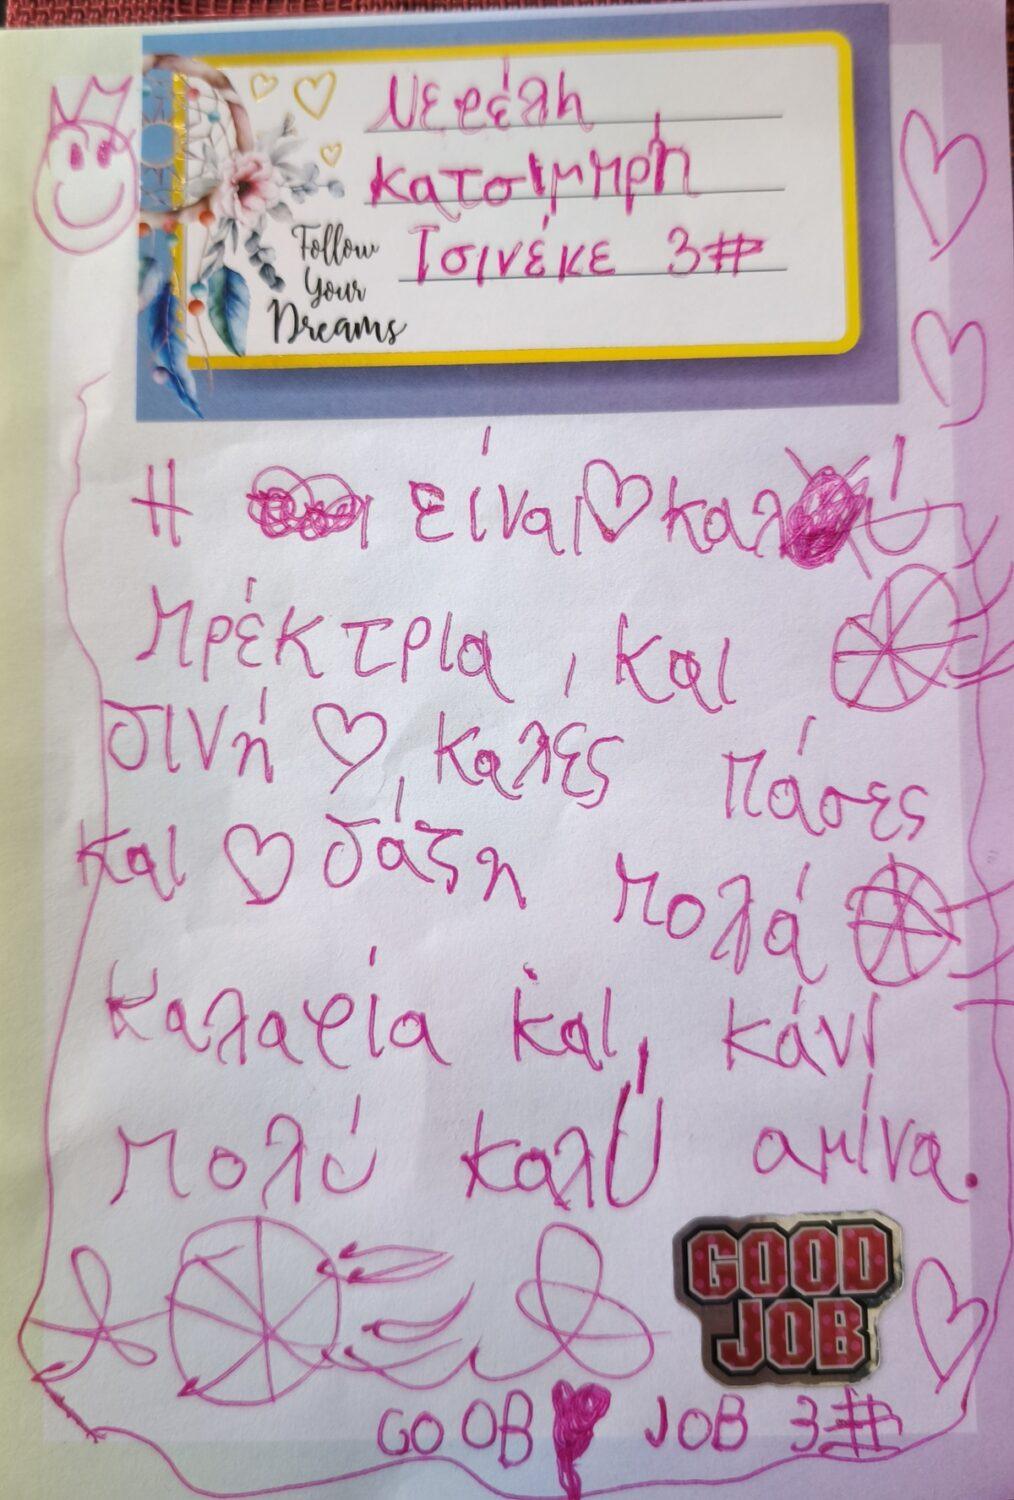 Νεφέλη
Κατσιμπρή
Τσινέκε 3#
Follow
Your
Dreams
Η είναι καλύ
πρέκτρια, και
δινή, καλές πάσες
και δάζη πολά
καλαφία και, κάνι
πολύ καλύ αμίνα.
GOOD
JOB
GOOB JOB 3#